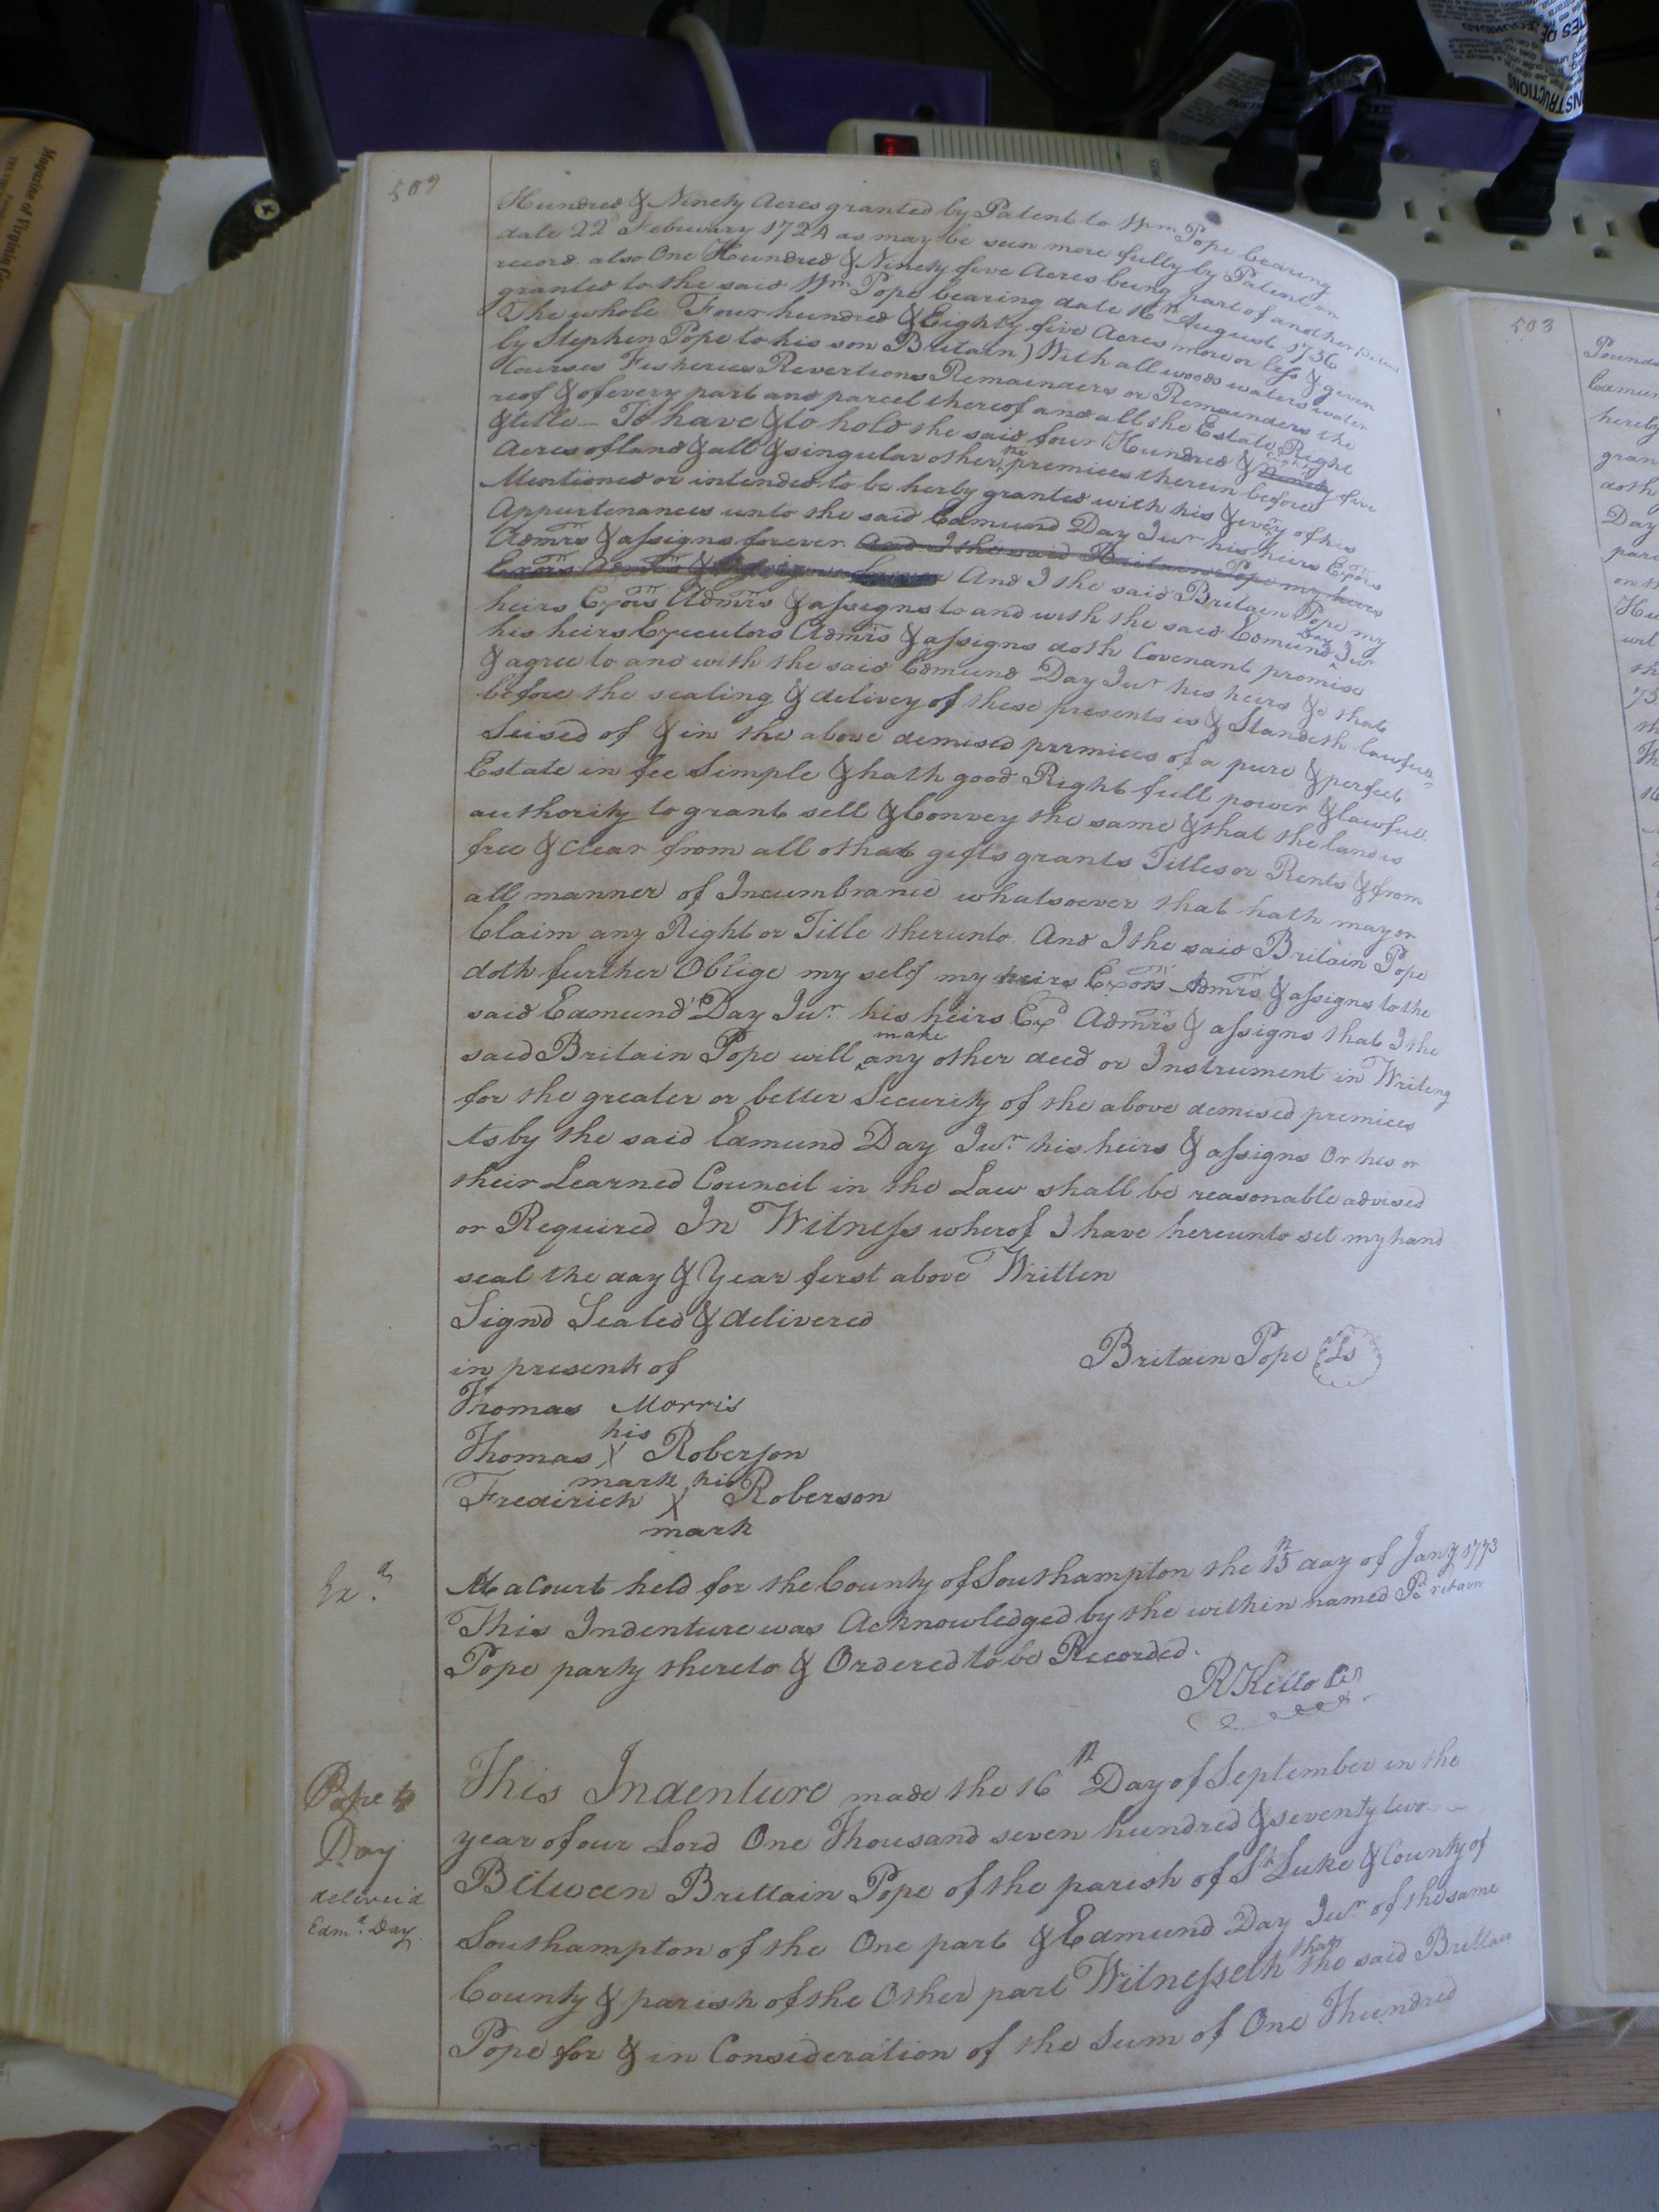 502
Hundred & Ninety Acres granted by Patent to Wm Pope bearing
date 22d February 1724 as may be seen more fully by Patent on
record. also One Hundred & Ninety five Acres being part of another Patent
granted to the said Wm Pope bearing date 16th August 1736
The whole Four hundred & Eighty five Acres more or less & given
by Stephen Pope to his son Britain) With all woods waters water
Courses Fisheries Revertions Remainders or Remainders the
reof & of every part and parcel thereof and all the Estate Right
& title _ To have & to hold the said four Hundred & Eighty Ninety five
Acres of land & all & singular other the premices therein before
Mentioned or intended to be herby granted with his & every of his
Appurtenances unto the said Edmund Day Junr his heirs Exors
Admrs & assigns forever And I the said Britain Pope my heirs
Exors Admrs & assigns forever And I the said Britain Pope my
heirs Exors Admrs & assigns to and with the said Edmund Day Junr
his heirs Executors Admrs & assigns doth Covenant promise
& agree to and with the said Edmund Day Junr his heirs &c that
before the sealing & delivey of these presents is & Standeth lawfull
Seised of & in the above demised prrmices of a pure & perfect
Estate in fee Simple & hath good Right full power & lawfull
authority to grant sell & Convey the same & that the land is
free & clear from all othat gifts grants Titles or Rents & from
all manner of Incumbrance whatsoever that hath may or
Claim any Right or Title therunto. And I the said Britain Pope
doth further Oblige my self my heirs Exors Admrs & assigns to the
said Edmund Day Junr his heirs Exd Admrs & assigns that I the
said Britain Pope will make any other deed or Instrument in Writeng
for the greater or better Security of the above demised premices
As by the said Edmund Day Junr his heirs & assigns Or his or
their Learned Council in the Law shall be reasonable advised
or Required In Witness wherof I have hereunto set my hand
seal the day & Year first above Written
Signd Sealed & delivered
in presents of
Britain Pope Ls
Thomas Morris
Thomas his X mark Roberson
Fredirick his X mark Roberson
Exd.
At a Court held for the County of Southampton the 15th day of Jany 1773
This Indenture was Acknowledged by the within named Britain
Pope party thereto & Ordered to be Recorded.
R Kello
Pope to
Day
deliver'd
Edmd. Day
This Indenture made the 16th Day of September in the
year of our Lord One Thousand seven hundred & seventy two
Between Brittain Pope of the parish of St Luke & County of
Southampton of the One part & Edmund Day Junr of the same
County & parish of the Other part Witnesseth that the said Brittain
Pope for & in Consideration of the Sum of One Thundred
503
hereby
doth
Day
Magazine of Virginia